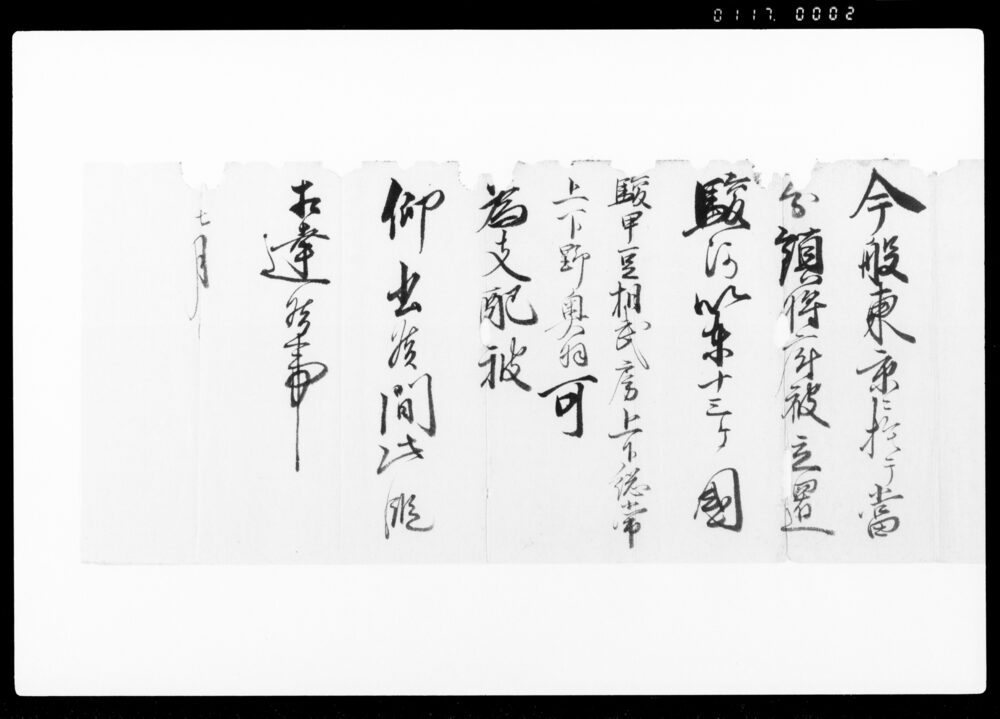 0117. 0002
今般東京ニ於テ當
分鎮将府被立置
駿河以東十三ケ國
駿甲豆相武房上下総常
上下野奥羽可
為支配被
仰出候間此段
相達候事
七月